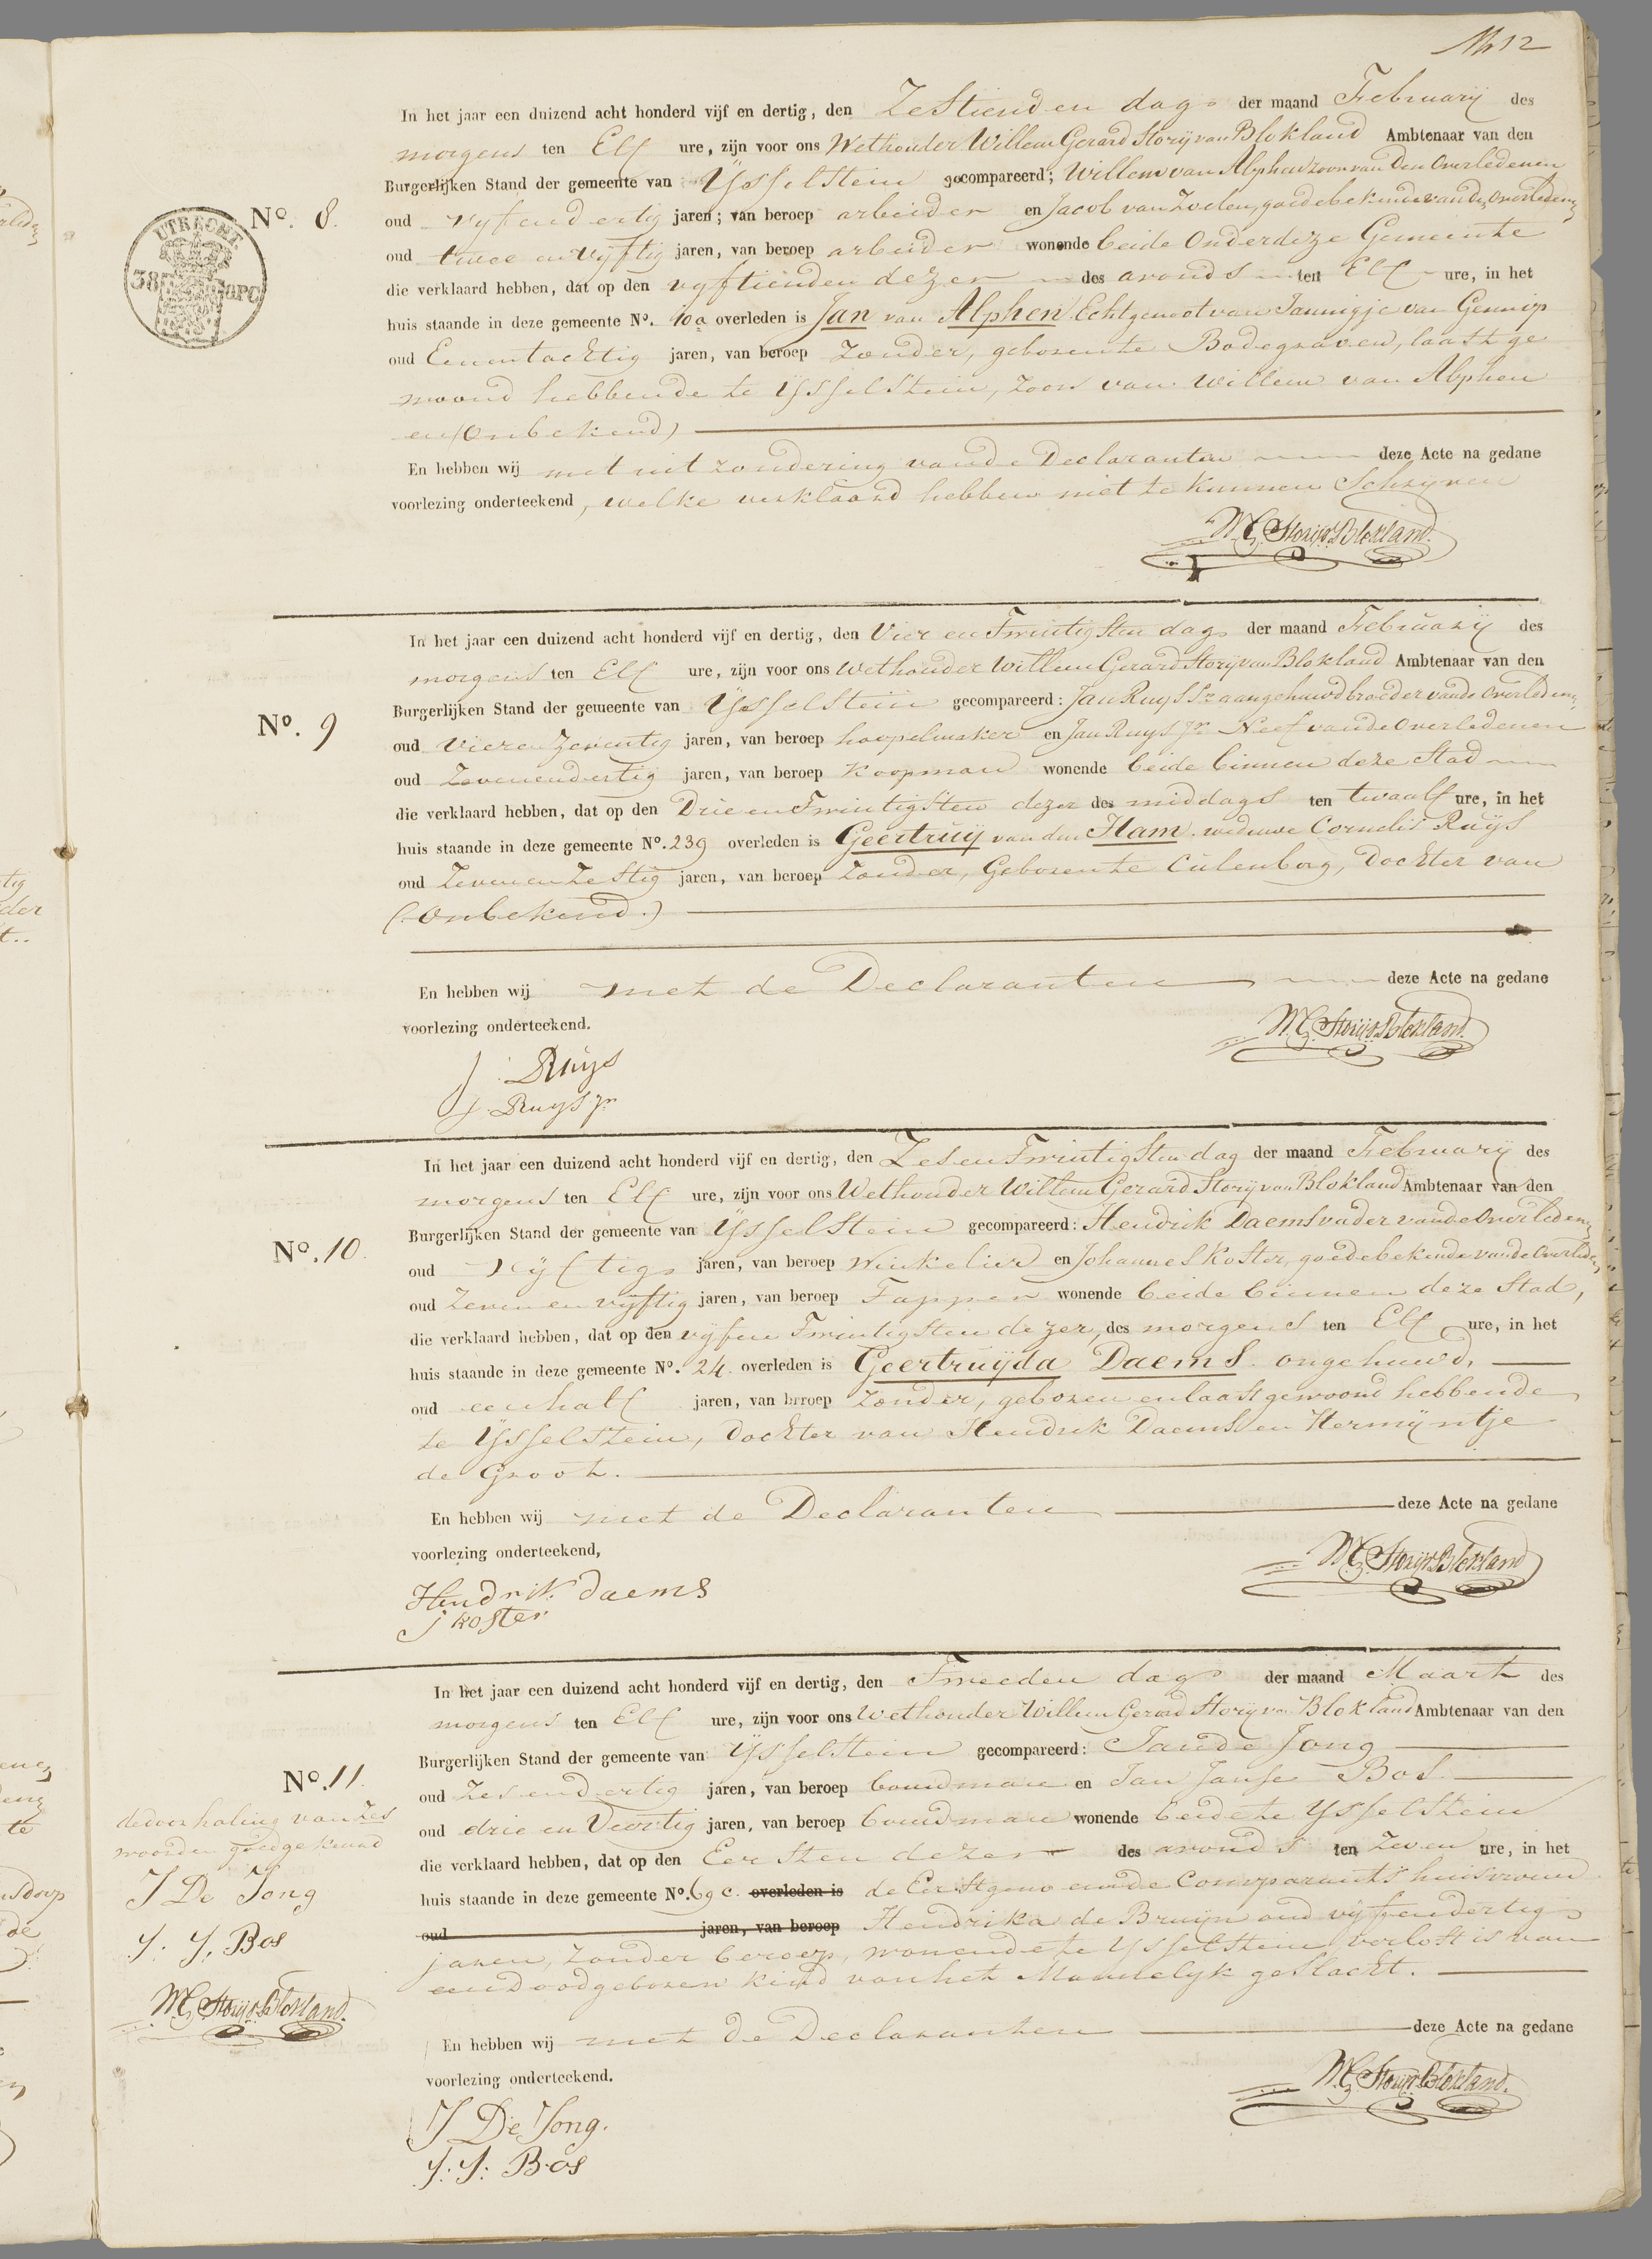 12
In het jaar een duizend acht honderd vijf en dertig, den Zestienden dag der maand February des
morgens ten Elf ure, zijn voor ons Wethouder Willem Gerard Storij van Blokland Ambtenaar van den
Burgerlijken Stand der gemeente van IJsselstein gecompareerd; Willem van Alphen zoon van den Overledenen
UTRECHT
38
OPC
No. 8.
oud vyfendertig jaren; van beroep arbeider en Jacob van Zoelen, goede bekende van den Overledenen
oud twee en vyftig jaren, van beroep arbeider wonende beide Onder deze Gemeente
die verklaard hebben, dat op den vyftienden dezer des avonds ten Elf ure, in het
huis staande in deze gemeente No. 10a overleden is Jan van Alphen Echtgenoot van Jannigje van Gennip
oud Eenentachtig jaren, van beroep Zonder, geboren te Bodegraven, laatst ge
woond hebbende te IJsselstein, zoon van Willem van Alphen
en (Onbekend)
En hebben wij met uitzondering van de Declaranten deze Acte na gedane
voorlezing onderteekend, welke verklaard hebben niet te kunnen Schryven
WG Storijv.Blokland.
In het jaar een duizend acht honderd vijf en dertig, den Vier en Twintigsten dag der maand February des
morgens ten Elf ure, zijn voor ons Wethouder Willem Gerard Storij van Blokland Ambtenaar van den
Burgerlijken Stand der gemeente van IJsselstein gecompareerd: Jan Ruys Sr aangehuwd broeder van de Overledene
No. 9
oud Vier en Zeventig jaren, van beroep hoepelmaker en Jan Ruys Jr Neef van de Overledenen
oud Zevenendertig jaren, van beroep Koopman wonende beide binnen deze Stad
die verklaard hebben, dat op den Drie en Twintigsten dezer des middags ten twaalf ure, in het
huis staande in deze gemeente No. 239 overleden is Geertruy van den Ham weduwe Cornelis Ruys
oud Zeven en Zestig jaren, van beroep Zonder, Geboren te Culenborg, Dochter van
(Onbekend.)
En hebben wij met de Declaranten deze Acte na gedane
voorlezing onderteekend.
WG Storijv.Blokland.
J Ruys
J. Ruys Jr
In het jaar een duizend acht honderd vijf en dertig, den Zes en Twintigsten dag der maand February des
morgens ten Elf ure, zijn voor ons Wethouder Willem Gerard Storij van Blokland Ambtenaar van den
Burgerlijken Stand der gemeente van IJsselstein gecompareerd: Hendrik Daems vader van de Overledene
No. 10.
oud Vyftig jaren, van beroep winkelier en Johannes Koster, goede bekende van de Overledene
oud Zeven en vyftig jaren, van beroep Tapper wonende beide binnen deze Stad,
die verklaard hebben, dat op den vyf en Twintigsten dezer, des morgens ten Elf ure, in het
huis staande in deze gemeente No. 24. overleden is Geertruyda Daems ongehuwd,
oud een half jaren, van beroep Zonder, geboren en laatst gewoond hebbende
te IJsselstein, Dochter van Hendrik Daems en Hermyntje
de Groot.
En hebben wij met de Declaranten deze Acte na gedane
voorlezing onderteekend,
WG Storijv.Blokland
Hendrik Daems
J Koster
In het jaar een duizend acht honderd vijf en dertig, den Tweeden dag der maand Maart des
morgens ten Elf ure, zijn voor ons Wethouder Willem Gerard Storij van Blokland Ambtenaar van den
Burgerlijken Stand der gemeente van IJsselstein gecompareerd: Jan de Jong
No. 11.
oud Zesendertig jaren, van beroep bouwman en Jan Janse Bos
oud drie en Veertig jaren, van beroep bouwman wonende beide te IJsselstein
die verklaard hebben, dat op den Eersten dezer des avonds ten Zeven ure, in het
huis staande in deze gemeente No. 69c. overleden is de Eerstgenoemde Comparants huisvrouw
oud jaren, van beroep Hendrika de Bruyn oud vyfendertig
jaren, zonder beroep, wonende te IJsselstein verlost is van
een doodgeboren kind van het Mannelyk geslacht.
de doorhaling van zes
woorden goedgekeurd
J De Jong
J. J. Bos
WG Storijv.Blokland.
En hebben wij met de Declaranten deze Acte na gedane
voorlezing onderteekend.
WG Storijv.Blokland.
J De Jong.
J. J. Bos